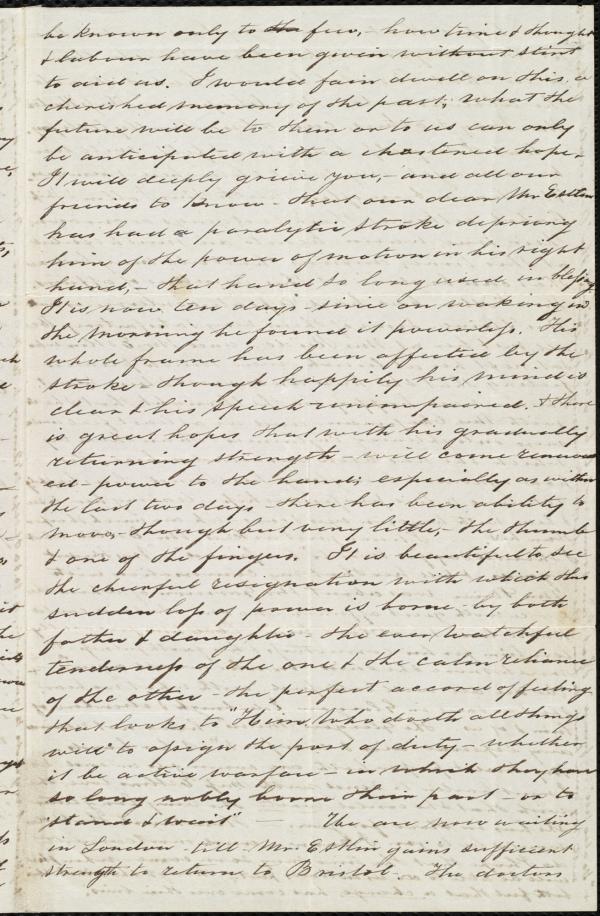 be known only to the few, - how time & thought
& labour have been given without stint
to aid us. I would fain dwell on this, a
cherished memory of the past; what the
future will be to them or to us can only
be anticipated with a chastened hope.
It will deeply grieve you, - and all our
friends to know - that our dear Mr Estlin
has had a paralytic stroke depriving
him of the power of motion in his right
hand, - that hand so long used in blessing
It is now ten days - since on waking in
the morning he found it powerless. His
whole frame has been affected by the
stroke - though happily his mind is
clear & his speech unimpaired. & there
is great hopes that with his gradually
returning strength - will come renew
ed - power to the hand; especially as within
the last two days - there has been ability to
move, - though but very little, - the thumb
& one of the fingers. It is beautiful to see
the cheerful resignation with which this
sudden loss of power is borne - by both
father & daughter - the ever watchful
tenderness of the one & the calm reliance
of the other - the perfect accord of feeling
that looks to "Him, Who doeth all things
well" to assign the post of duty - whether
it be active warfare - in which they have
so long nobly borne their part - or to
"stand & wait" - We are now waiting
in London till Mr. Estlin gains sufficient
strength to return to Bristol. The doctors